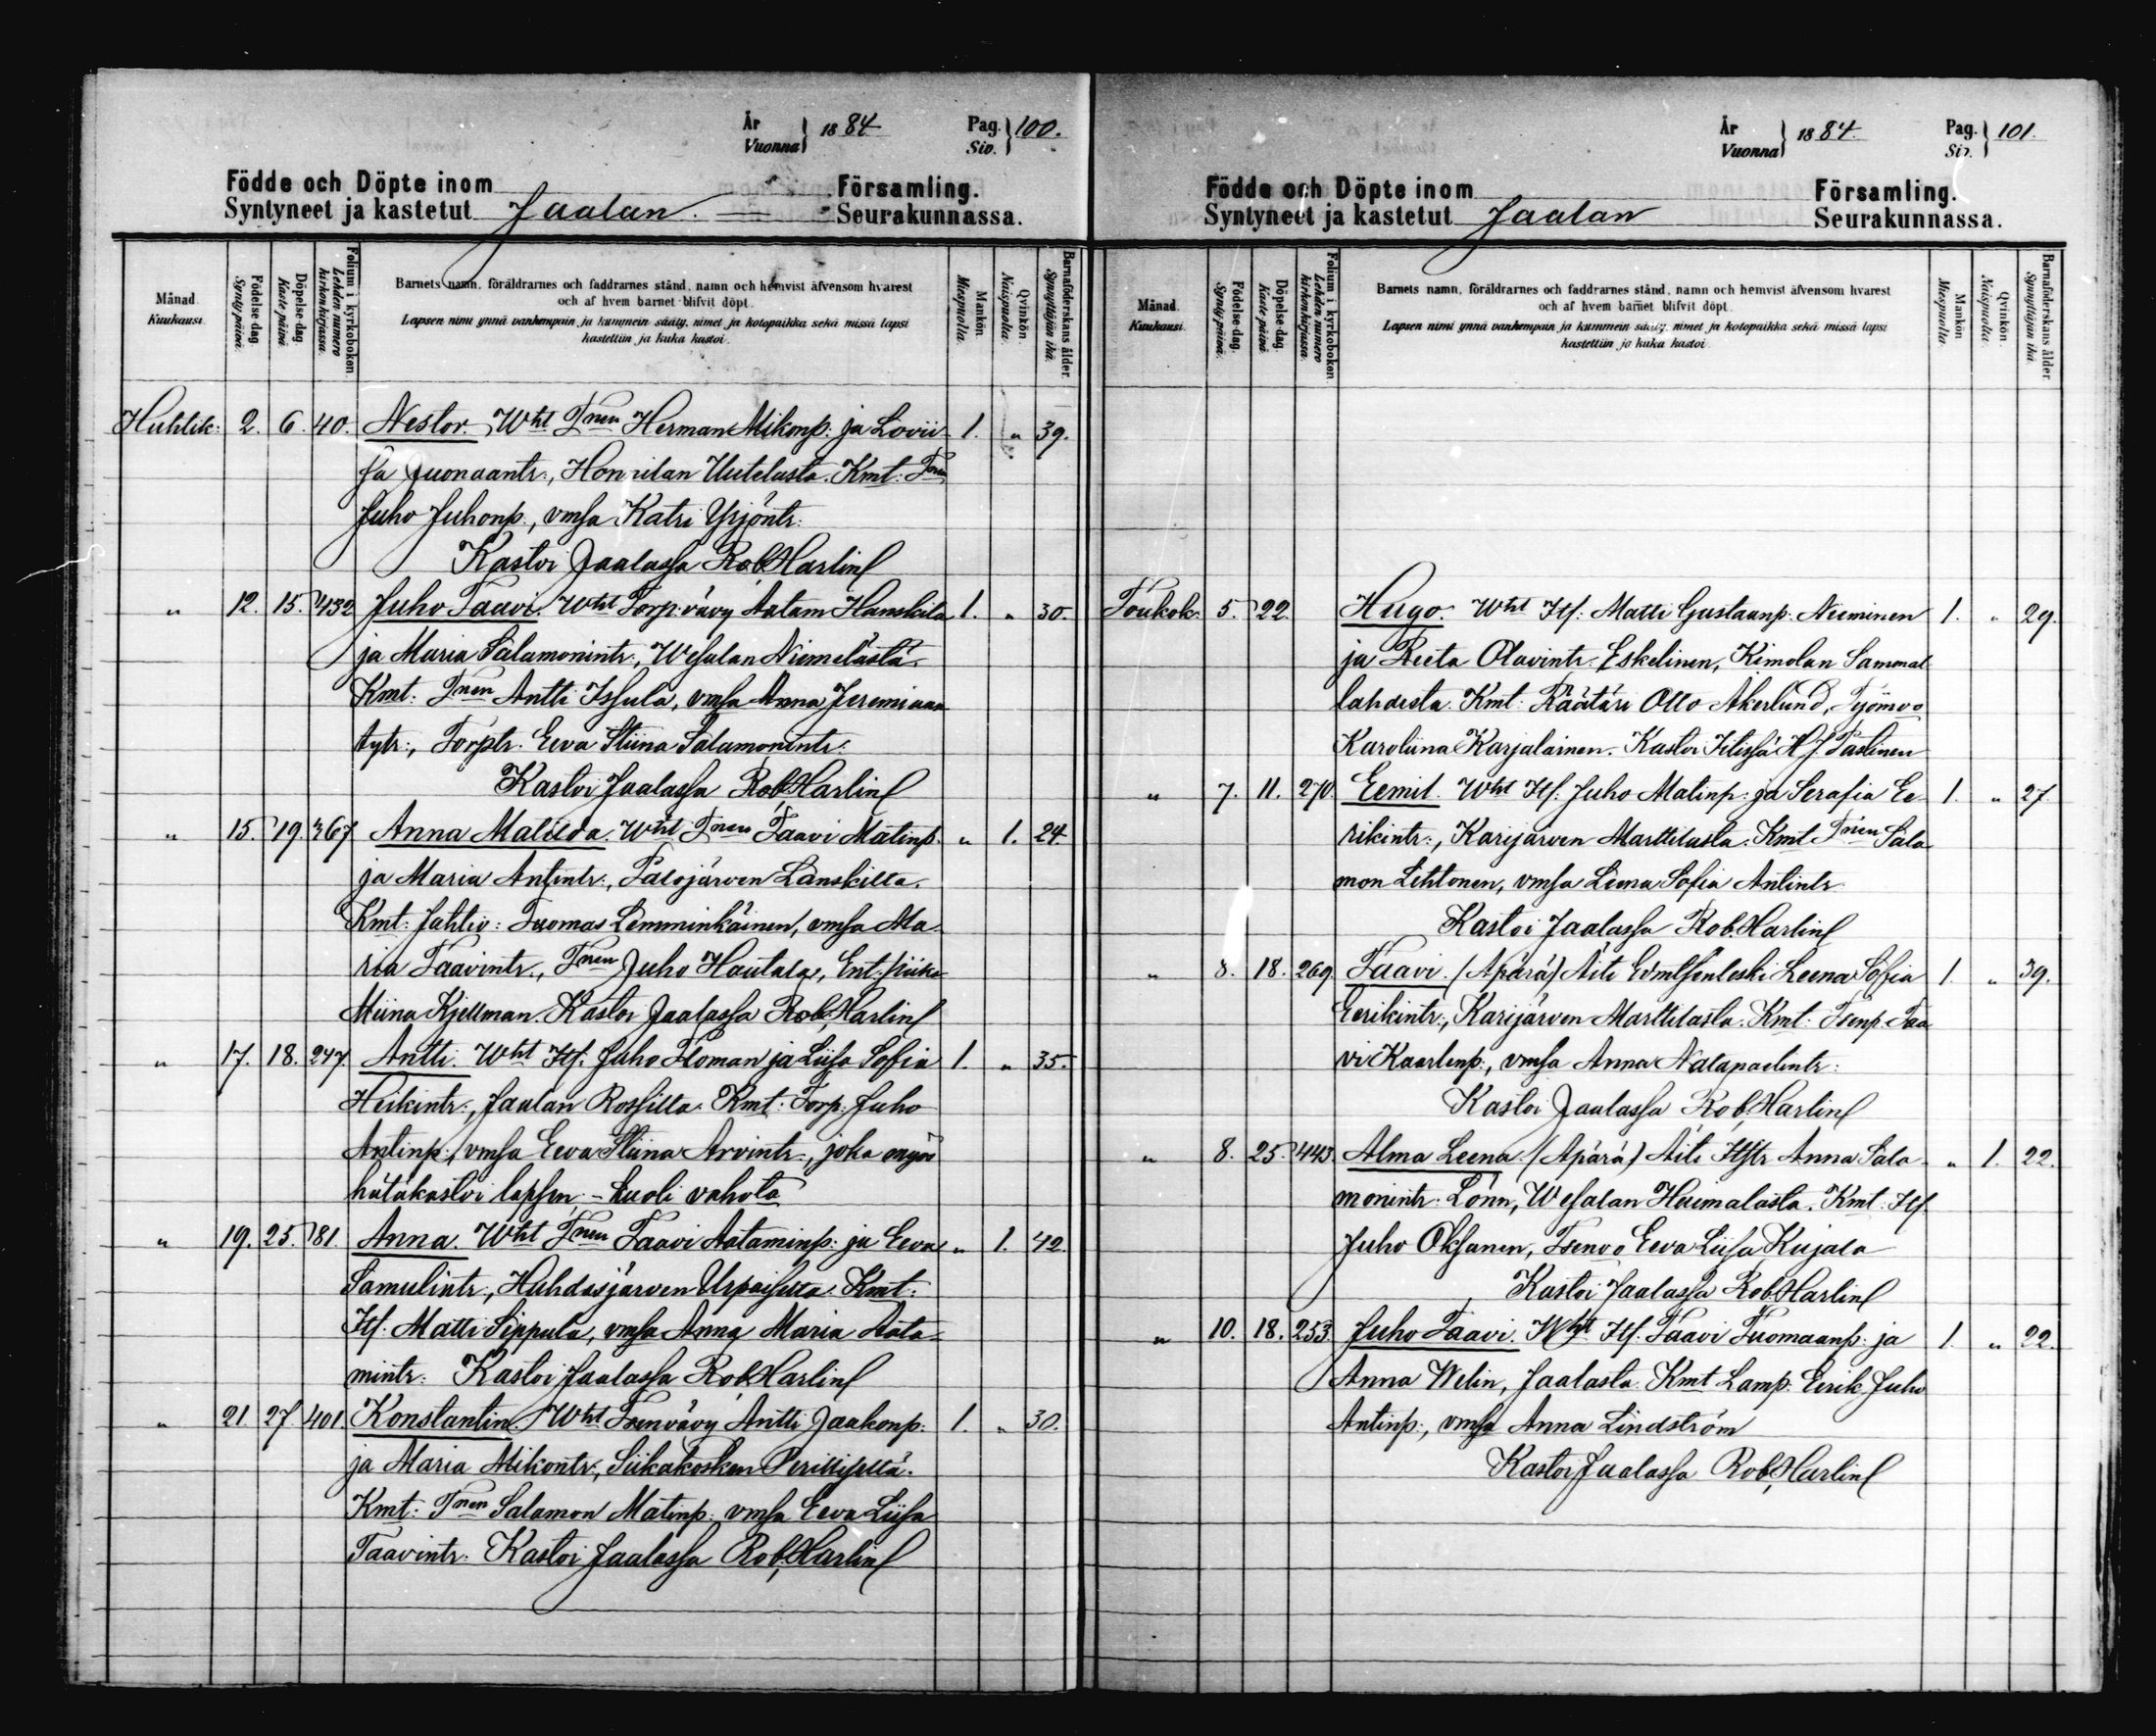 År
Vuonna } 1884
Pag.
Siv. } 100.
Födde och Döpte inom Församling.
Syntyneet ja kastetut Jaalan. Seurakunnassa.
Månad. Kuukausi.
Födelse-dag. Synty-päivä.
Döpelse-dag. Kaste-päivä.
Folium i kyrkoboken. Lehden numero kirkonkirjassa.
Barnets namn, föräldrarnes och faddrarnes stånd, namn och hemvist äfvensom hvarest
och af hvem barnet blifvit döpt.
Lapsen nimi ynnä vanhempain ja kummein sääty, nimet ja kotopaikka sekä missä lapsi
kastettiin ja kuka kastoi.
Mankön. Miespuolia.
Qvinkön. Naispuolia.
Barnaföderskans ålder. Synnyttäjän ikä.
Huhtik: 2. 6. 40. Nestor. Wht Tnen Herman Mikonp: ja Lovii- 1. " 39.
sa Juonaantr:, Honnilan Uutelasta. Kmt: Tnen
Juho Juhonp., vmsa Katri Yrjöntr:
Kastoi Jaalassa Rob. Harlin
" 12. 15. 432 Juho Taavi. Wht Torp: vävy Aatam Hanskila 1. " 30.
ja Maria Salamonintr:, Wesalan Niemelästä.
Kmt: Tnen Antti Issula, vmsa Anna Jeremiaan
tytr:, Torptr. Eeva Stiina Salamonintr:
Kastoi Jaalassa Rob. Harlin
" 15. 19. 367 Anna Matilda. Wht Tnen Taavi Matinp. " 1. 24.
ja Maria Antintr:, Palojärven Länskilta.
Kmt: Jahtiv: Tuomas Lemminkäinen, vmsa Ma-
ria Taavintr., Tnen Juho Hautala, Ent. piika
Miina Kjellman. Kastoi Jaalassa Rob. Harlin
" 17. 18. 247. Antti. Wht Itf. Juho Homan ja Liisa Sofia 1. " 35.
Heikintr:, Jaalan Rossilta. Kmt: Torp: Juho
Antinp:, vmsa Eeva Stiina Arvintr:, joka myös
hätäkastoi lapsen. - Kuoli vahota
" 19. 25. 81. Anna. Wht Tnen Taavi Aataminp: ja Eeva " 1. 42.
Samulintr:, Huhdasjärven Urpaiselta. Kmt:
Itf. Matti Sippula, vmsa Anna Maria Aata-
mintr: Kastoi Jaalassa Rob. Harlin
" 21. 27. 401. Konstantin. Wht Tsenvävy Antti Jaakonp: 1. " 30.
ja Maria Mikontr:, Siikakosken Perittiseltä.
Kmt: Tnen Salamon Matinp: vmsa Eeva Liisa
Taavintr: Kastoi Jaalassa Rob. Harlin
År
Vuonna } 1884.
Pag.
Siv. } 101.
Födde och Döpte inom Församling.
Syntyneet ja kastetut Jaalan Seurakunnassa.
Månad. Kuukausi.
Födelse-dag. Synty-päivä.
Döpelse-dag. Kaste-päivä.
Folium i kyrkoboken. Lehden numero kirkonkirjassa.
Barnets namn, föräldrarnes och faddrarnes stånd, namn och hemvist äfvensom hvarest
och af hvem barnet blifvit döpt.
Lapsen nimi ynnä vanhempain ja kummein sääty, nimet ja kotopaikka sekä missä lapsi
kastettiin ja kuka kastoi.
Mankön Miespuolia.
Qvinkön. Naispuolia.
Barnaföderskans ålder Synnyttäjän ikä.
Toukok: 5. 22. Hugo. Wht Itf: Matti Gustaanp. Nieminen 1. " 29.
ja Reeta Olavintr. Eskelinen, Kimolan Sammal
lahdesta. Kmt: Räätäri Otto Åkerlund, Työmvo
Karoliina Karjalainen. Kastoi Iitissä H. J. Paslinen
" 7. 11. 270. Eemil. Wht Itf. Juho Matinp: ja Serafia Ee- 1. " 27.
rikintr:, Karijärven Marttilasta. Kmt Tnen Sala-
mon Lehtonen, vmsa Leena Sofia Antintr.
Kastoi Jaalassa Rob. Harlin
" 8. 18. 269. Taavi. (Äpärä) Äiti Leena Sofia 1. " 39.
Eerikintr:, Karijärven Marttilasta. Kmt: Tsenp. Taa
vi Kaarlenp:, vmsa Anna Natapaelintr:
Kastoi Jaalassa Rob. Harlin
" 8. 25. 443. Alma Leena. (Äpärä) Äiti Itftr Anna Sala- " 1. 22.
monintr: Lönn, Wesalan Heimalasta. Kmt: Itf.
Juho Oksanen, Tsenvo Eeva Liisa Kujala
Kastoi Jaalassa Rob. Harlin
" 10. 18. 253. Juho Taavi. Wht Itf. Taavi Tuomaanp: ja 1. " 22.
Anna Welin, Jaalasta. Kmt Lamp. Eerik Juho
Antinp:, vmsa Anna Lindström
Kastoi Jaalassa Rob. Harlin